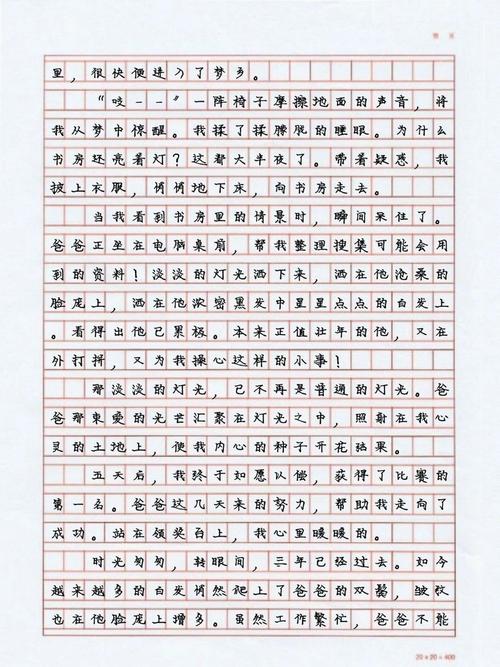 里，很快便进入了梦乡。
“吱－－”一阵椅子摩擦地面的声音，将
我从梦中惊醒。我揉了揉朦胧的睡眼。为什么
书房还亮着灯？这都大半夜了。带着疑惑，我
披上衣服，悄悄地下床，向书房走去。
当我看到书房里的情景时，瞬间呆住了。
爸爸正坐在电脑桌前，帮我整理搜集可能会用
到的资料！淡淡的灯光洒下来，洒在他沧桑的
脸庞上，洒在他浓密黑发中星星点点的白发上
。看得出他已累极。本来正值壮年的他，又在
外打拼，又为我操心这样的小事！
那淡淡的灯光，已不再是普通的灯光。爸
爸那束爱的光芒汇聚在灯光之中，照射在我心
灵的土地上，使我内心的种子开花结果。
五天后，我终于如愿以偿，获得了比赛的
第一名。爸爸这几天来的努力，帮助我走向了
成功。站在颁奖台上，我心里暖暖的。
时光匆匆，转眼间，三年已经过去。如今
越来越多的白发悄然爬上了爸爸的双鬓，皱纹
也在他脸庞上增多。虽然工作繁忙，爸爸不能
20×20=400